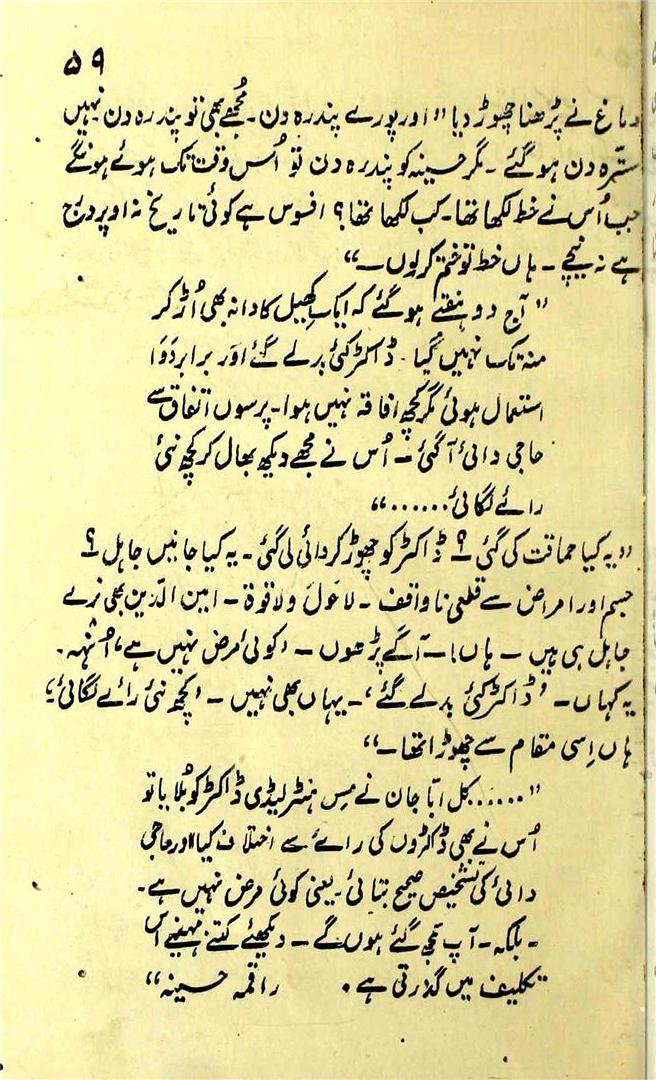 ۵۹
دماغ نے پڑھنا چھوڑ دیا" اور پورے پندرہ دن۔ مُجھے بھی تو پندرہ دن نہیں
سترہ دن ہو گئے ۔ مگر حسینہ کو پندرہ دن تو اُس وقت تک ہوئے ہونگے
جب اُس نے خط لکھا تھا۔ کب لکھا تھا؟ افسوس ہے کوئی تاریخ نہ اوپر درج
ہے نہ نیچے ۔ ہاں خط تو ختم کر لوں ۔"
"آج دو ہفتے ہو گئے کہ ایک کھیل کا دانہ بھی اُڑ کر
منہ تک نہیں گیا ۔ ڈاکٹر کئی بدلے گئے اور برابر دَوَا
استعمال ہوئی مگر کچھ افاقہ نہیں ہوا۔ پرسوں اتفاق سے
حاجی دائی آ گئی ۔ اُس نے مجھے دیکھ بھال کر کچھ نئی
رائے لگائی ......"
"یہ کیا حماقت کی گئی؟ ڈاکٹر کو چھوڑ کر دائی لی گئی ۔ یہ کیا جانیں جاہل؟
جسم اور امراض سے قطعی ناواقف ۔ لاحول ولا قوۃ ۔ امین الدّین بھی نرے
جاہل ہی ہیں ۔ ہاں! ۔ آگے پڑھوں ۔ 'کوئی مرض نہیں ہے' اُنہہ۔
یہ کہاں ۔ 'ڈاکٹر کئی بدلے گئے' ۔ یہاں بھی نہیں ۔ 'کچھ نئی رائے لگائی'؛
ہاں اِسی مقام سے چھوڑا تھا ۔"
"...... کل ابّا جان نے مِس ہنٹر لیڈی ڈاکٹر کو بُلایا تو
اُس نے بھی ڈاکٹروں کی رائے سے اختلاف کیا اور حاجی
دائی کی تشخیص صحیح بتائی ۔ یعنی کوئی مرض نہیں ہے ۔
۔ بلکہ ۔ آپ سمجھ گئے ہوں گے ۔ دیکھئے کتنے مہینے اس
تکلیف میں گذرتی ہے ۔ راقمہ حسینہ"